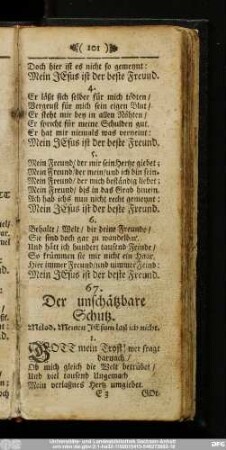 ( 101 )
Doch hier ist es nicht so gemeynt:
Mein JEsus ist der beste Freund.
4.
Er läßt sich selber für mich tödten/
Vergeust für mich sein eigen Blut/
Er steht mir bey in allen Nöhten/
Er spricht für meine Schulden gut.
Er hat mir niemals was verneint:
Mein JEsus ist der beste Freund.
5.
Mein Freund/ der mir sein Hertze giebet;
Mein Freund/der mein/und ich bin sein.
Mein Freund/ der mich beständig liebet;
Mein Freund/ biß in das Grab hinein.
Ach hab ichs nun nicht recht gemeynt:
Mein JEsus ist der beste Freund.
6.
Behalte/ Welt/ dir deine Freunde/
Sie sind doch gar zu wandelbar.
Und hätt ich hundert tausend Feinde/
So krümmen sie mir nicht ein Haar.
Hier immer Freund/und nimmer Feind:
Mein JEsus ist der beste Freund.
67.
Der unschätzbare
Schutz.
Melod. Meinen JEsum laß ich nicht.
1.
GOTT mein Trost! wer fragt
darnach/
Ob mich gleich die Welt betrübet/
Und viel tausend Ungemach
Mein verlaßnes Hertz umgiebet.
E 3 GOtt